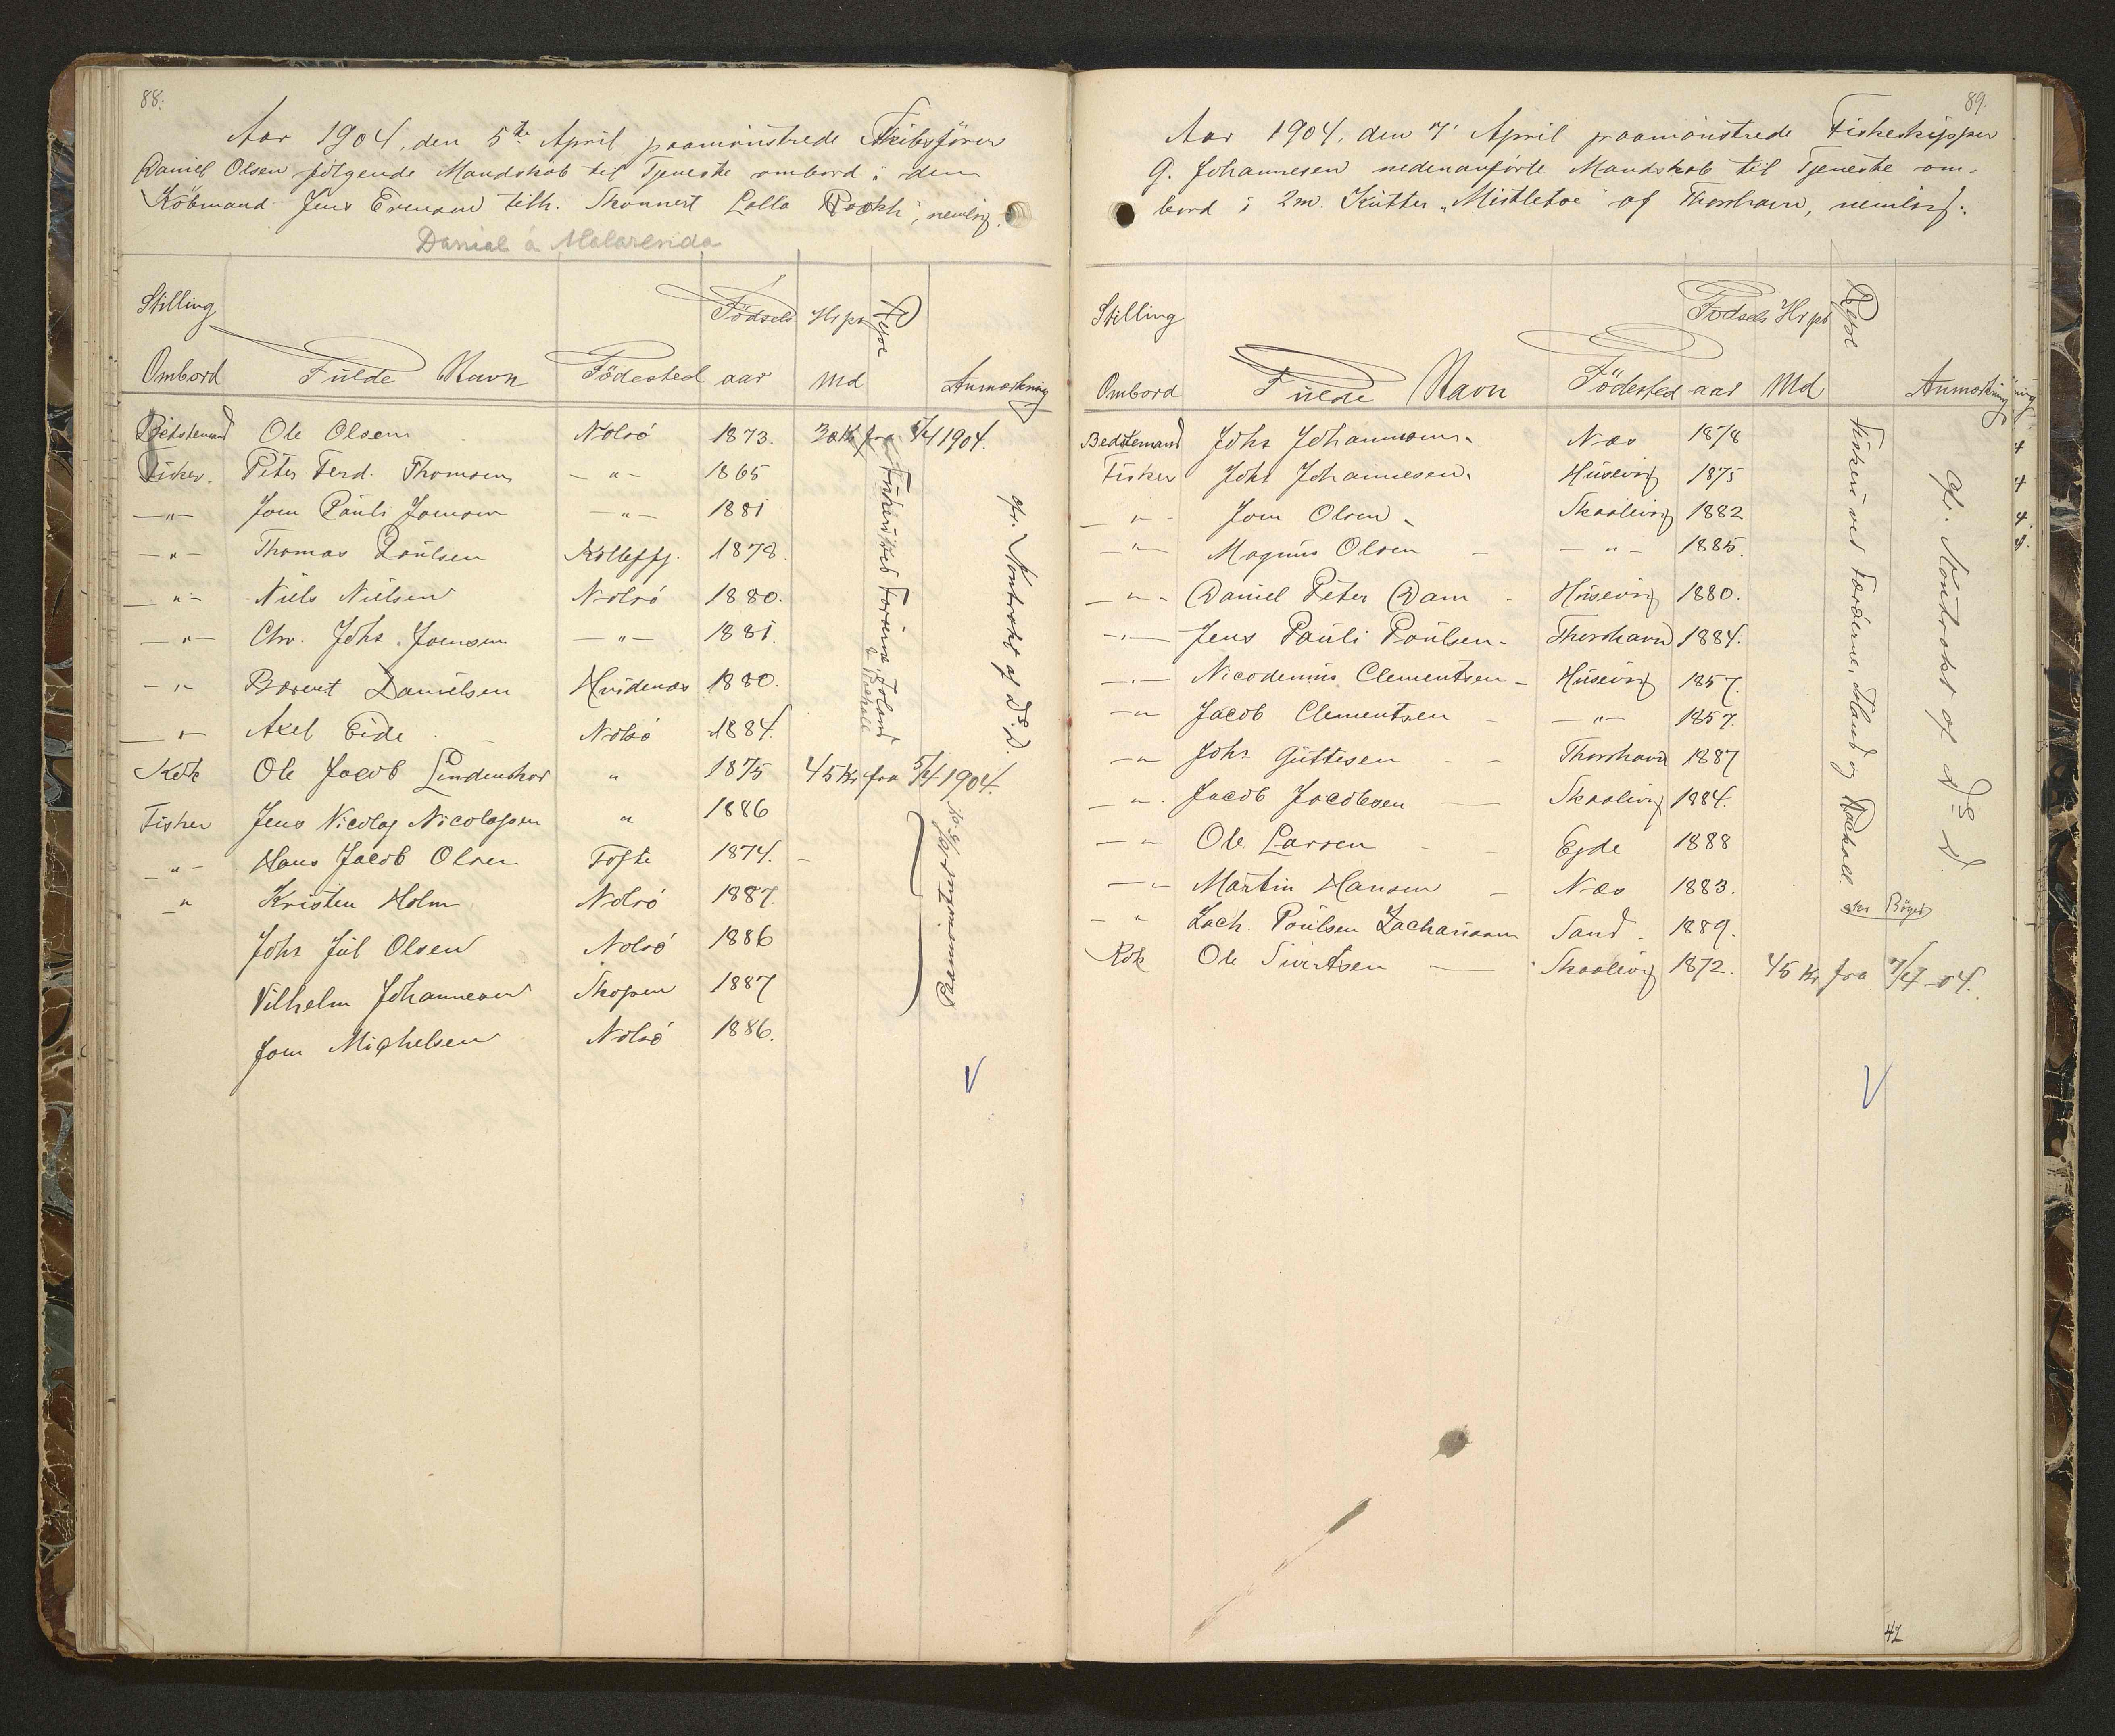 88.
Aar 1904, den 5te April paamönstrede Skibsförer
Daniel Olsen fölgende Mandskab til Tjeneste ombord i den
Köbmand Jens Evensen tilh. Skonnert Lalla Rookh, nemlig.
Danial á Malarenda
Stilling Ombord Fulde Navn Födested Födsels aar Hr pr Md Rejse Anmærkning
Bedstemand Ole Olsen Nolsö 1873. 30 Kr fra 5/4 1904.
Fisker. Peter Ferd. Thomsen —"— 1865
—"— Joen Pauli Joensen —"— 1881
—"— Thomas Poulsen Kollefj. 1878.
—"— Niels Nielsen Nolsö 1880.
—"— Chr. Johs. Joensen —"— 1881.
—"— Barent Danielsen Hvidenæs 1880.
—"— Axel Eide Nolsö 1884.
Kok Ole Jacob Lindenskov " 1875 45 Kr fra 5/4 1904.
Fisker Jens Nicolaj Nicolajsen " 1886
—"— Hans Jacob Olsen Tofte 1874.
—" Kristen Holm Nolsö 1887.
Johs Jul Olsen Nolsö 1886
Vilhelm Johannesen Skopen 1887
Joen Michelsen Nolsö 1886.
Fiskeri ved Færöerne, Island
& Rockall
cfr. Kontrakt af D. D.
Paamönstret
89.
Aar 1904, den 7' April paamönstrede Fiskeskipper
G. Johannesen nedenanförte Mandskab til Tjeneste om-
bord i 2m. Kutter "Mistletoe" af Thorshavn, nemlig:
Stilling Ombord Fulde Navn Födested Födsels aar Hr pr Md Rejse Anmærkning
Bedstemand Johs Johannesen Næs 1878
Fisker Johs Johannesen Husevig 1875
—"— Joen Olsen Skaalevig 1882
—"— Magnus Olsen —"— 1885.
—"— Daniel Peter Dam Husevig 1880.
—"— Jens Pauli Poulsen Thorshavn 1884.
—"— Nicodemus Clementsen Husevig 1857.
—"— Jacob Clementsen —"— 1857.
—"— Johs Guttesen Thorshavn 1887
—"— Jacob Jacobsen Skaalevig 1884.
—"— Ole Larsen Ejde 1888
—"— Martin Hansen Næs 1883.
—"— Zach. Poulsen Zachariasen Sand. 1889.
Kok Ole Sivertsen Skaalevig 1872. 45 Kr fra 7/4 04.
Fiskeri ved Færöerne, Island og Rockall.
cfr. Kontrakt af D. D.
42